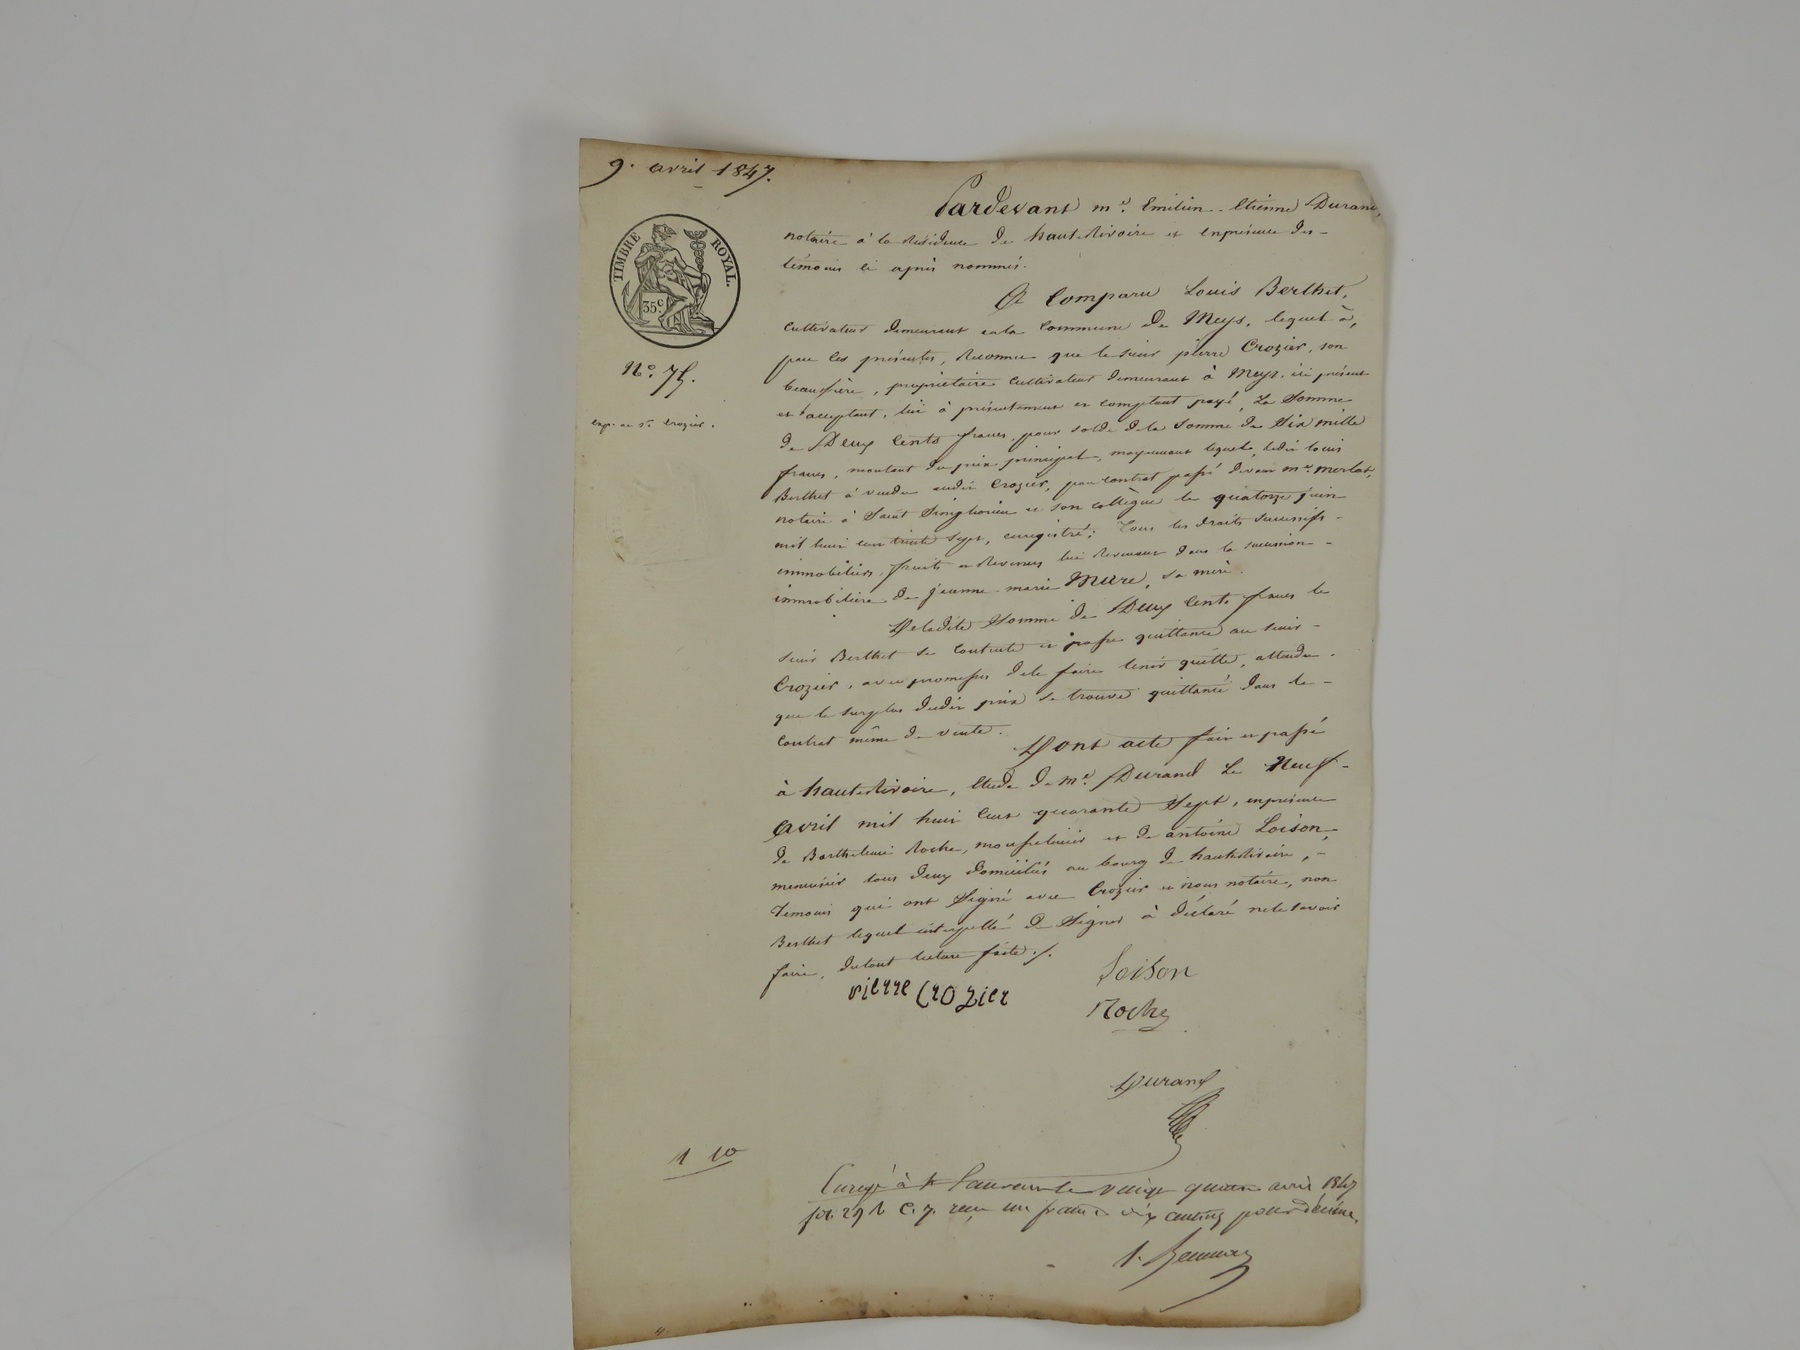 9. avril 1847.
TIMBRE ROYAL.
35 c
N.o 75.
exp. au sr. Crozier.
Pardevant me. Emilien-Etienne Durand,
notaire à la résidence de hauterivoire et en présence des
témoins ci après nommés.
A Comparu Louis Berthet,
cultivateur demeurant en la commune de Meys, lequel à,
par ces présentes, reconnu que le sieur pierre Crozier, son
beaufrère, propriétaire cultivateur demeurant à Meys, ici présent
et acceptant, lui à présentement et comptant payé, la Somme
de Deux Cents francs, pour solde de la somme de Six mille
francs, montant du prix principal, moyennant lequel, ledit louis
Berthet à vendu audit Crozier, par contrat passé devant me. merlat,
notaire à Saint Simphorien et son collègue le quatorze juin
mil huit cent trente sept, enregistré; Tous les droits successifs
immobiliers, fruits et revenus lui revenant dans la succession
immobilière de jeanne-marie Mure, sa mère.
De ladite Somme de Deux Cents francs le
sieur Berthet se contente et passe quittance au sieur
Crozier, avec promesse de le faire tenir quitte, attendu
que le surplus dudit prix se trouve quittancé dans le
contrat même de vente.
Dont acte fait et passé
à hauterivoire, étude de me. Durand Le Neuf
Avril mil huit cent quarante Sept, en présence
de Barthelemi Roche, mousselinier et de antoine Loison,
menuisier tous deux domiciliés au bourg de hauterivoire,
Temoins qui ont Signé avec Crozier et nous notaire, non
Berthet lequel interpellé de Signer à déclaré ne le savoir
faire, du tout lecture faite ./.
pierre CROZier
Loison
Roche
Durand
1 10
Enregé à St Laurent le vingt quatre avril 1847
fo. 29 Vo C. 7. reçu un franc dix centimes pour décime.